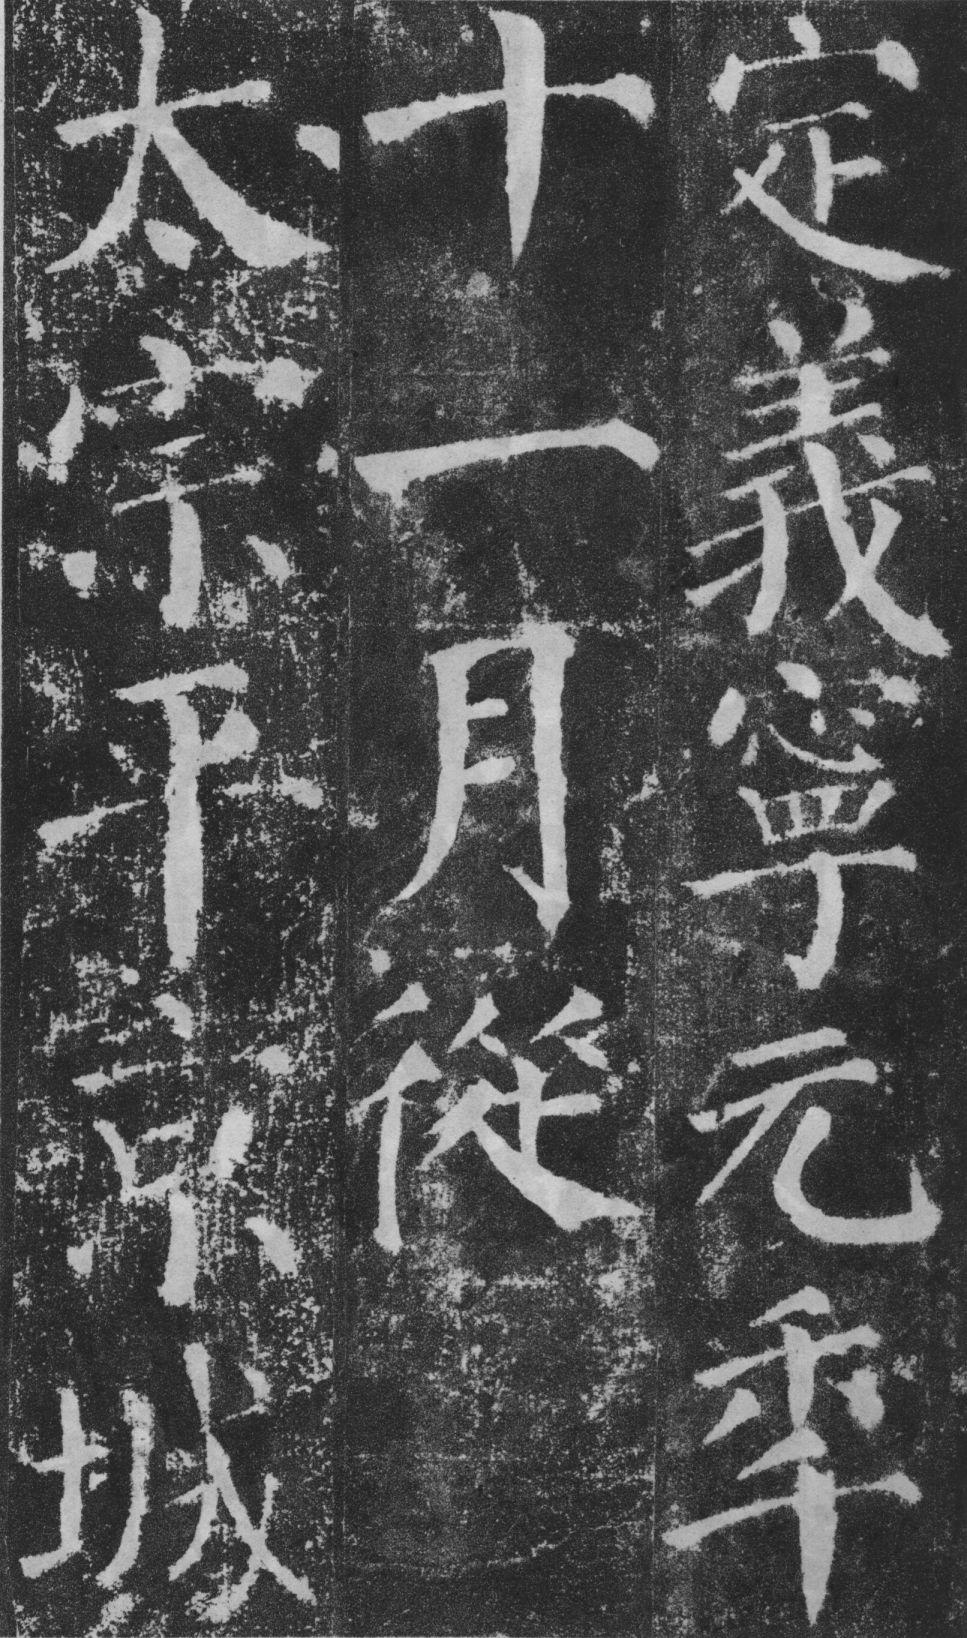 定義寧元年
十一月從
太宗平京城